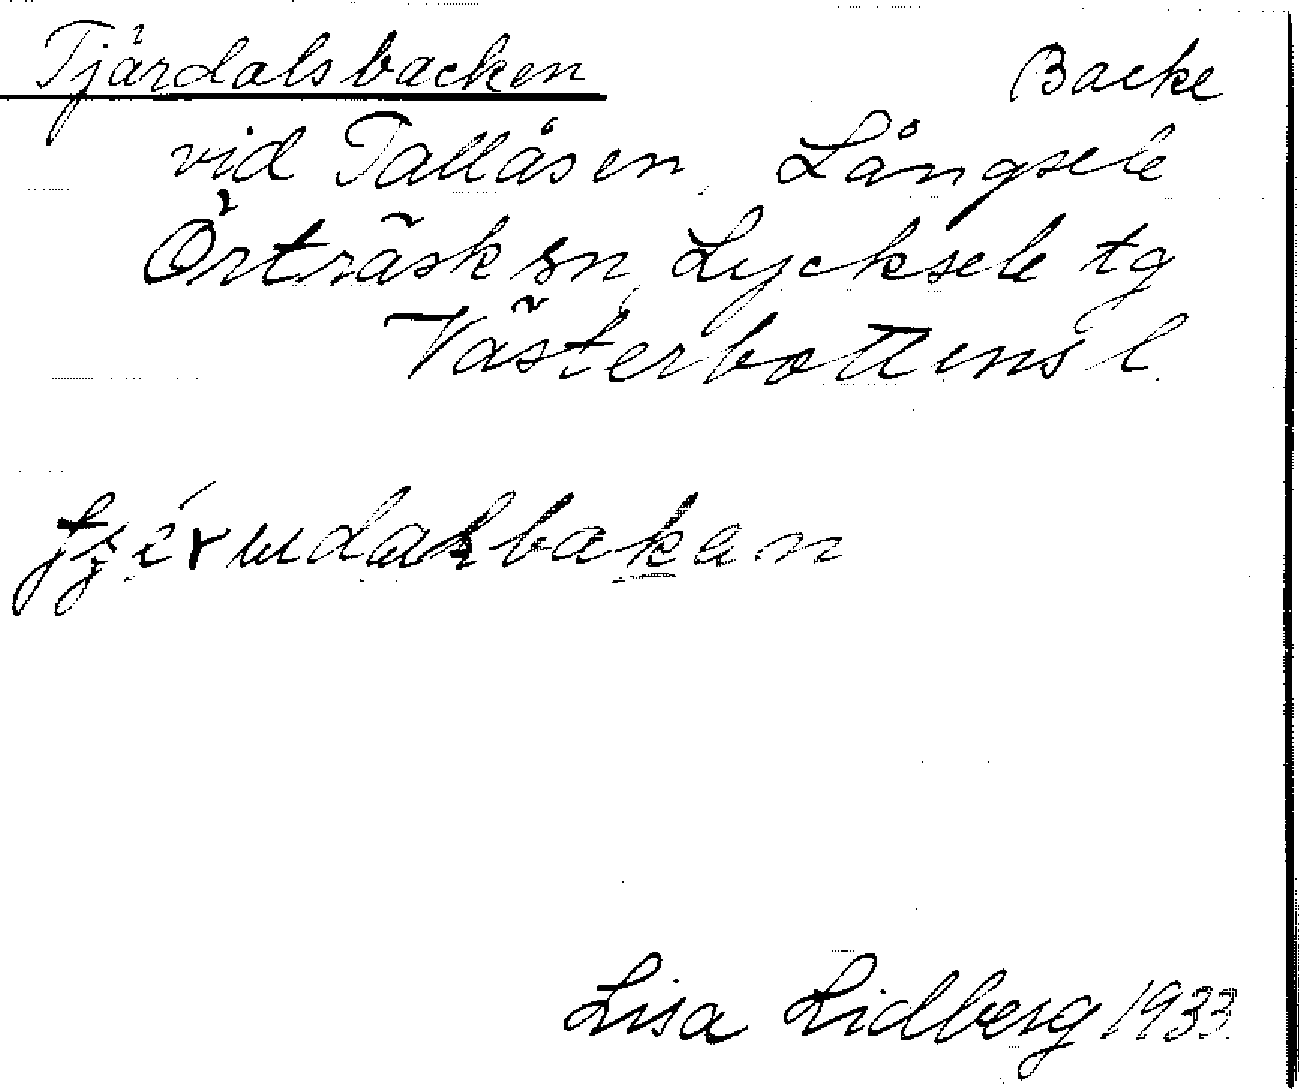 Tjärdalsbacken Backe
vid Tallåsen, Långsele
Örträsk sn, Lycksele tg
Västerbottens l.
Lisa Lidberg 1933.